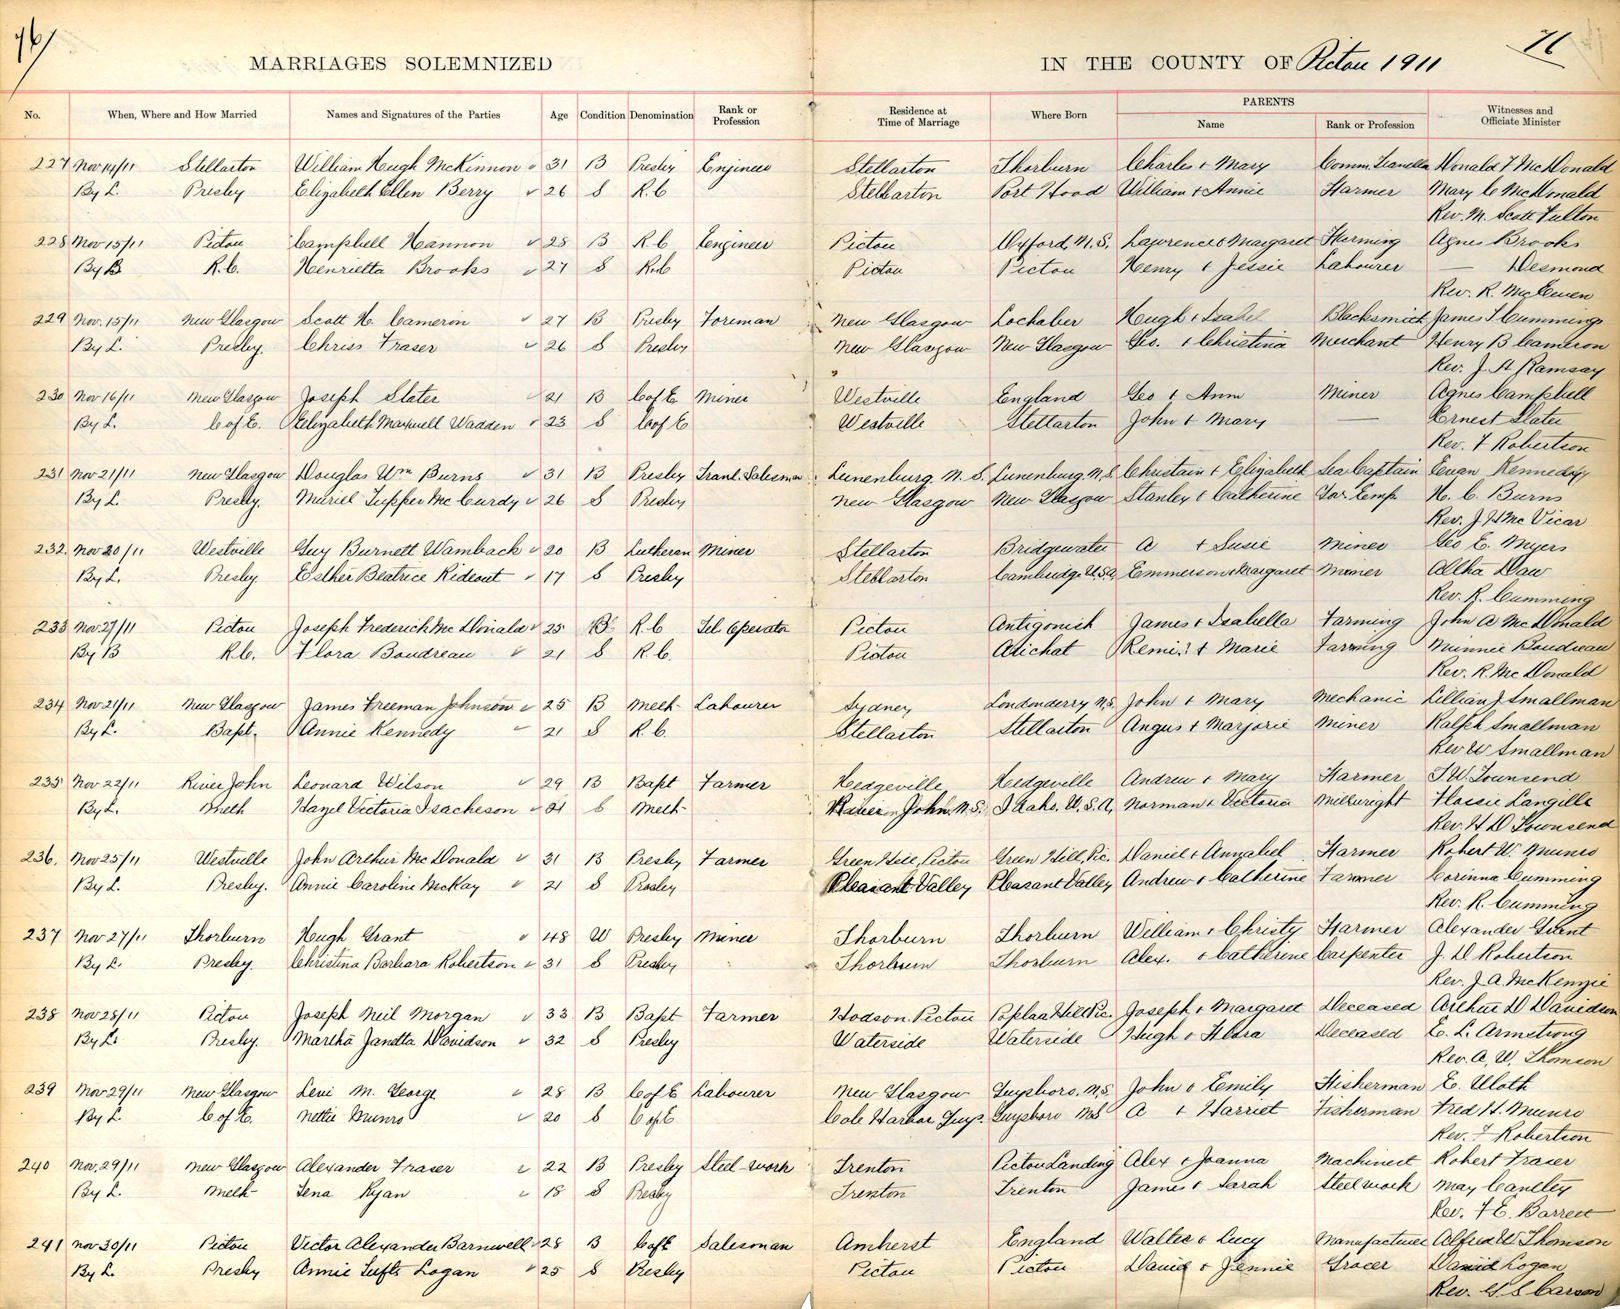 76/ 76
MARRIAGES SOLEMNIZED IN THE COUNTY OF Pictou 1911
No. When, Where and How Married Names and Signatures of the Parties Age Condition Denomination Rank or Profession Residence at Time of Marriage Where Born PARENTS Name Rank or Profession Witnesses and Officiate Minister
227 Nov 14/11 Stellarton William Hugh McKinnon 31 B Presby Engineer Stellarton Thorburn Charles & Mary Comm. Traveller Donald F McDonald
By L. Presby Elizabeth Ellen Berry 26 S R.C Stellarton Port Hood William & Annie Farmer Mary C McDonald
Rev. M. Scott Fulton
228 Nov 15/11 Pictou Campbell Hannon 28 B R.C Engineer Pictou Oxford, N.S. Lawrence & Margaret Farming Agnes Brooks
By B R.C. Henrietta Brooks 27 S R.C Pictou Pictou Henry & Jessie Labourer — Desmond
Rev. R. McEwen
229 Nov. 15/11 New Glasgow Scott H. Cameron 27 B Presby Foreman New Glasgow Lochaber Hugh & Isabel Blacksmith James T Cummings
By L. Presby. Chriss Fraser 26 S Presby New Glasgow New Glasgow Geo. & Christina Merchant Henry B Cameron
Rev. J. A Ramsay
230 Nov 16/11 New Glasgow Joseph Slater 21 B C of E Miner Westville England Geo & Ann Miner Agnes Campbell
By L. C of E. Elizabeth Maxwell Wadden 23 S C of E Westville Stellarton John & Mary — Ernest Slater
Rev. F Robertson
231 Nov 21/11 New Glasgow Douglas Wm Burns 31 B Presby Travl. Salesman Lunenburg N. S. Lunenburg, N.S. Christain & Elizabeth Sea Captain Ewan Kennedy
By L. Presby. Muriel Tupper McCurdy 26 S Presby New Glasgow New Glasgow Stanley & Catherine Gov. Emp H. C. Burns
Rev. J. H McVicar
232. Nov 20/11 Westville Guy Burnett Wamback 20 B Lutheran Miner Stellarton Bridgewater A & Susie Miner Geo E. Myers
By L. Presby. Esther Beatrice Rideout 17 S Presby Stellarton Cambridge U.S.A. Emmerson & Margaret Miner Daw
Rev. R. Cumming
233 Nov 27/11 Pictou Joseph Frederick McDonald 25 B R.C Tel Operator Pictou Antigonish James & Isabella Farming John A McDonald
By B R.C. Flora Boudreau 21 S R.C. Pictou Arichat Remi & Marie Farming Minnie Boudreau
Rev. R. McDonald
234 Nov 21/11 New Glasgow James Freeman Johnson 25 B Meth- Labourer Sydney Londonderry N.S. John & Mary Mechanic Lillian J Smallman
By L. Bapt. Annie Kennedy 21 S R.C Stellarton Stellarton Angus & Marjorie Miner Ralph Smallman
Rev W Smallman
235 Nov 22/11 River John Leonard Wilson 29 B Bapt Farmer Hedgeville Hedgeville Andrew & Mary Farmer T. W. Townsend
By L. Meth Hazel Victoria Isacheson 21 S Meth- River John N.S. Idaho. U.S.A. Norman & Victoria Millwright Flossie Langille
Rev. H D Townsend
236. Nov 25/11 Westville John Arthur McDonald 31 B Presby Farmer Green Hill, Pictou Green Hill, Pic. Daniel & Annabel Farmer Robert W. Munro
By L. Presby. Annie Caroline McKay 21 S Presby Pleasant Valley Pleasant Valley Andrew & Catherine Farmer Corinna Cumming
Rev. R. Cumming
237 Nov 27/11 Thorburn Hugh Grant 48 W Presby Miner Thorburn Thorburn William & Christy Farmer Alexander Grant
By L. Presby. Christina Barbara Robertson 31 S Presby Thorburn Thorburn Alex. & Catherine Carpenter J. D Robertson
Rev. J. A. McKenzie
238 Nov 28/11 Pictou Joseph Neil Morgan 33 B Bapt Farmer Hodson Pictou Poplar Hill Pic. Joseph & Margaret Deceased Arthur D Davidson
By L. Presby. Martha Janetta Davidson 32 S Presby Waterside Waterside Hugh & Flora Deceased E. L. Armstrong
Rev. A. W Thomson
239 Nov 29/11 New Glasgow Levi M. George 28 B C of E Labourer New Glasgow Guysboro. N.S. John & Emily Fisherman E. Uloth
By L. C of E. Nettie Munro 20 S C of E Cole Harbor Guys. Guysboro N.S A & Harriet Fisherman Fred H. Munro
Rev. F Robertson
240 Nov. 29/11 New Glasgow Alexander Fraser 22 B Presby Steel-work Trenton Pictou Landing Alex & Joanna Machinest Robert Fraser
By L. Meth- Tena Ryan 18 S Presby Trenton Trenton James & Sarah Steelwork May Cantley
Rev. F E. Barrett
241 Nov 30/11 Pictou Victor Alexander Barnwell 28 B C of E Salesman Amherst England Walter & Lucy Manufacturer Alfred W Thomson
By L. Presby Annie Tufts Logan 25 S Presby Pictou Pictou David & Jennie Grocer David Logan
Rev. G. S Carson